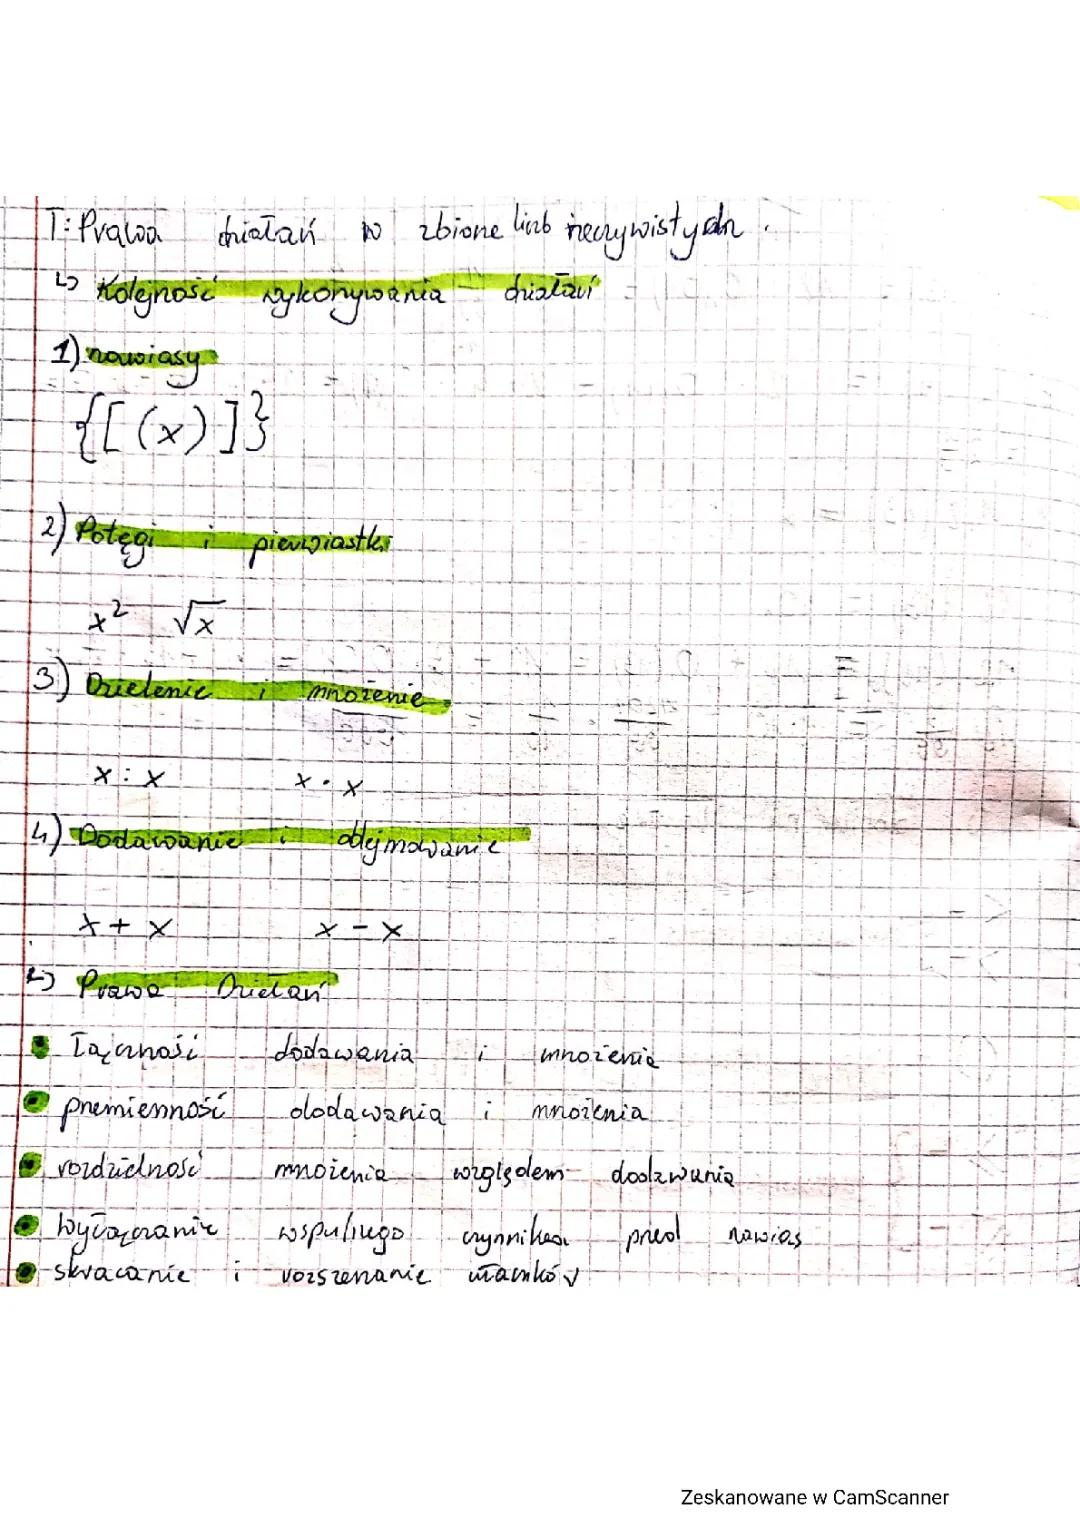 T: Prawa działań w zbiorze liczb rzeczywistych.
↳ Kolejność wykonywania działań
1) nawiasy
{[(x)]}
2) Potęgi i pierwiastki
x² √x
3) Dzielenie i mnożenie
x : x x · x
4) Dodawanie i odejmowanie
x + x x - x
↳ Prawa Działań
Łączność dodawania i mnożenia
przemienność dodawania i mnożenia
rozdzielność mnożenia względem dodawania
Wyłączanie wspólnego czynnika przed nawias
skracanie i rozszerzanie ułamków
Zeskanowane w CamScanner